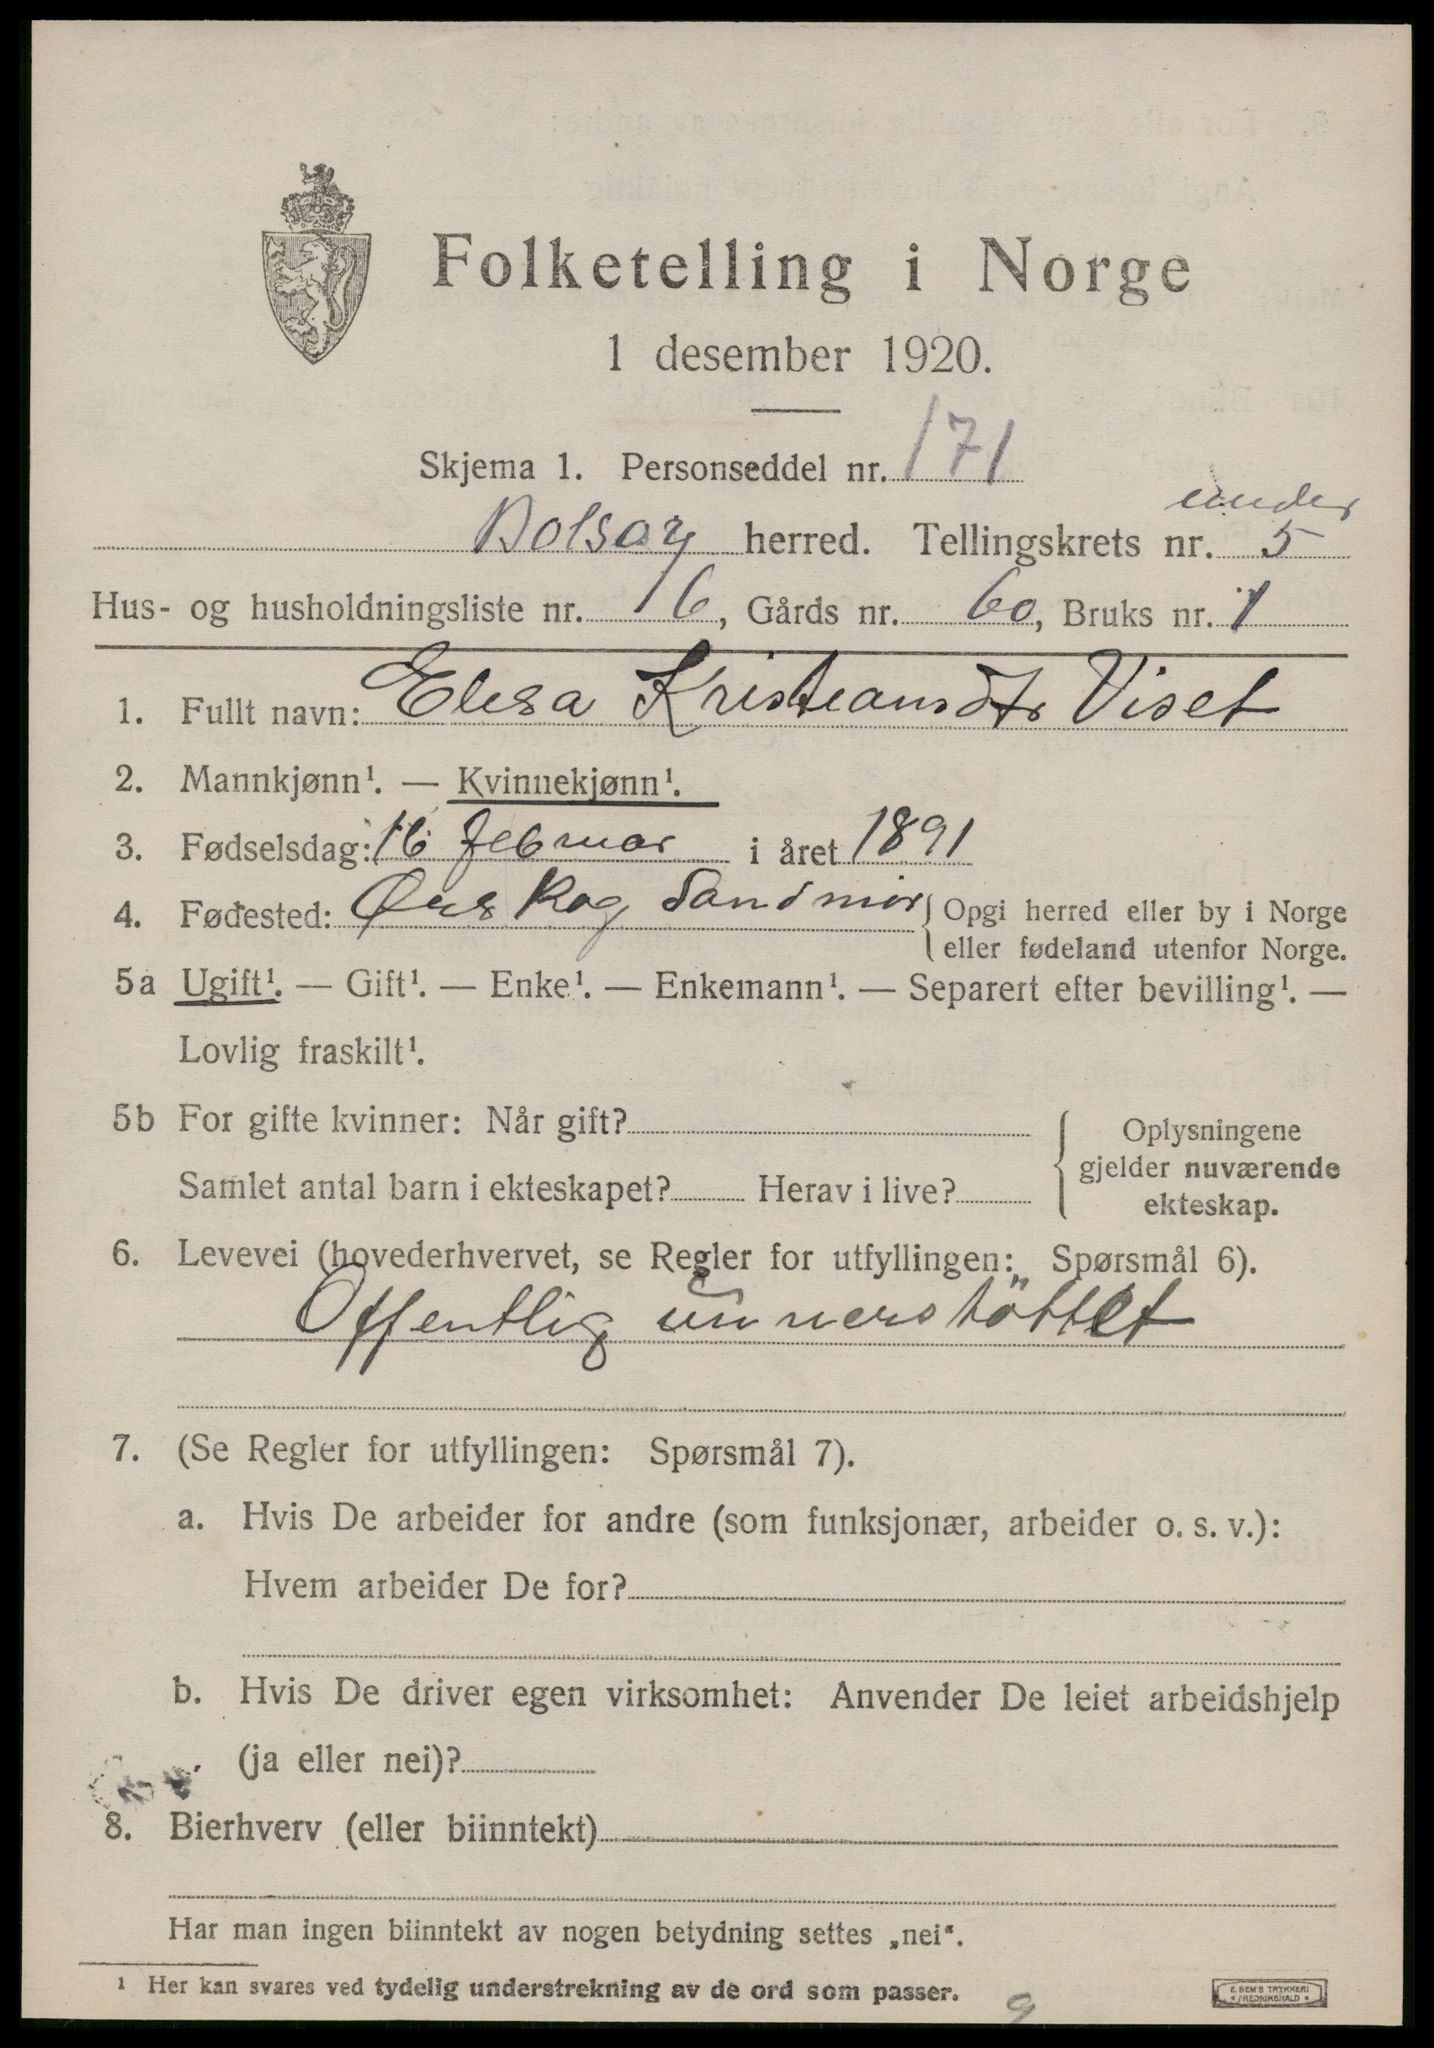 Folketelling i Norge
1 desember 1920.
Skjema 1. Personseddel nr. 171
under
Bolsøy herred. Tellingskrets nr. 5
Hus- og husholdningsliste nr. 16, Gårds nr. 60, Bruks nr. 1
1. Fullt navn: Elesa Kristeansdtr Viset
2. Mannkjønn¹. — Kvinnekjønn¹.
3. Fødselsdag: 16 februar i året 1891
4. Fødested: Ørskog Sandmör { Opgi herred eller by i Norge
eller fødeland utenfor Norge.
5a Ugift¹. — Gift¹. — Enke¹. — Enkemann¹. — Separert efter bevilling¹. —
Lovlig fraskilt¹.
5b For gifte kvinner: Når gift?
Samlet antal barn i ekteskapet? Herav i live?
{ Oplysningene
gjelder nuværende
ekteskap.
6. Levevei (hovederhvervet, se Regler for utfyllingen: Spørsmål 6).
Offentlig unnerstöttet
7. (Se Regler for utfyllingen: Spørsmål 7).
a. Hvis De arbeider for andre (som funksjonær, arbeider o. s. v.):
Hvem arbeider De for?
b. Hvis De driver egen virksomhet: Anvender De leiet arbeidshjelp
(ja eller nei)?
8. Bierhverv (eller biinntekt)
Har man ingen biinntekt av nogen betydning settes „nei".
¹ Her kan svares ved tydelig understrekning av de ord som passer.
E SEM'S TRYKKERI
* FREDRIKSHALD *